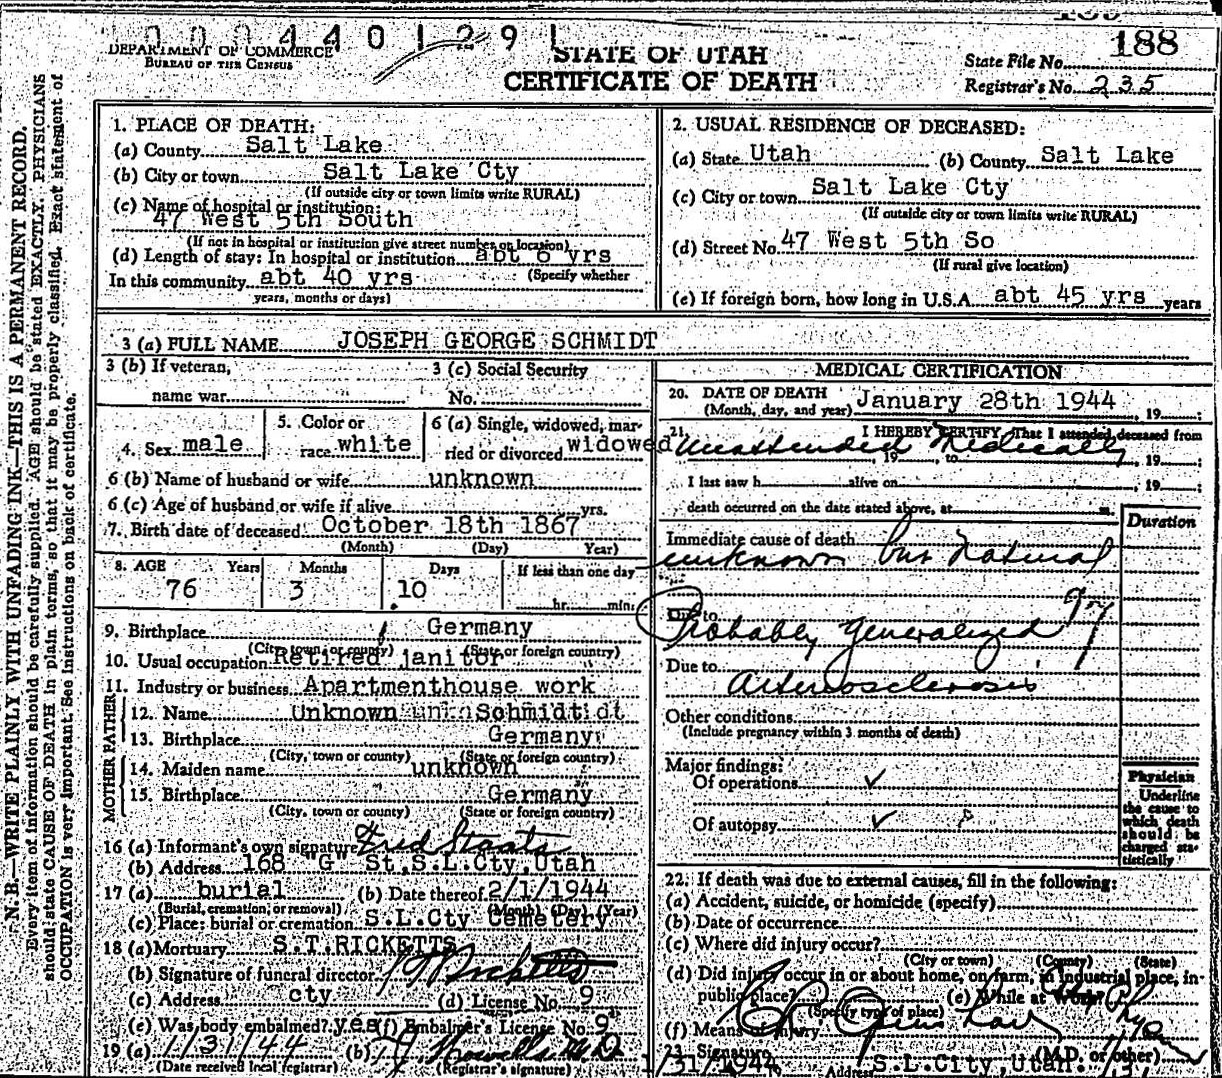 0 0 0 4 4 0 1 2 9 1
188
DEPARTMENT OF COMMERCE
BUREAU OF THE CENSUS
STATE OF UTAH
CERTIFICATE OF DEATH
State File No.
Registrar's No. 235
N. B.—WRITE PLAINLY WITH UNFADING INK—THIS IS A PERMANENT RECORD.
Every item of information should be carefully supplied. AGE should be stated EXACTLY. PHYSICIANS
should state CAUSE OF DEATH in plain terms, so that it may be properly classified. Exact statement of
OCCUPATION is very important. See instructions on back of certificate.
1. PLACE OF DEATH:
(a) County Salt Lake
(b) City or town Salt Lake Cty
(If outside city or town limits write RURAL)
(c) Name of hospital or institution:
47 West 5th South
(If not in hospital or institution give street number or location)
(d) Length of stay: In hospital or institution abt 6 yrs
(Specify whether
In this community abt 40 yrs
years, months or days)
2. USUAL RESIDENCE OF DECEASED:
(a) State Utah (b) County Salt Lake
(c) City or town Salt Lake Cty
(If outside city or town limits write RURAL)
(d) Street No. 47 West 5th So
(If rural give location)
(e) If foreign born, how long in U.S.A. abt 45 yrs years
3 (a) FULL NAME JOSEPH GEORGE SCHMIDT
3 (b) If veteran,
name war
3 (c) Social Security
No.
4. Sex male
5. Color or
race white
6 (a) Single, widowed, mar-
ried or divorced widowed
6 (b) Name of husband or wife unknown
6 (c) Age of husband or wife if alive yrs.
7. Birth date of deceased October 18th 1867
(Month) (Day) Year)
8. AGE Years Months Days If less than one day
76 3 10 hr. min.
9. Birthplace Germany
(City, town or county) (State or foreign country)
10. Usual occupation Retired janitor
11. Industry or business Apartmenthouse work
FATHER
12. Name Unknown Schmidt
13. Birthplace Germany
(City, town or county) (State or foreign country)
MOTHER
14. Maiden name unknown
15. Birthplace Germany
(City, town or county) (State or foreign country)
16 (a) Informant's own signature Fred Staats
(b) Address 168 "G" St, S.L.Cty, Utah
17 (a) burial (b) Date thereof 2/1/1944
(Burial, cremation, or removal) (Month) (Day) (Year)
(c) Place: burial or cremation S.L.Cty Cemetery
18 (a) Mortuary S.T.RICKETTS
(b) Signature of funeral director Ricketts
(c) Address cty (d) License No. 9
(e) Was body embalmed? yes (f) Embalmer's License No. 9
19 (a) 1/31/44 (b)
(Date received local registrar) (Registrar's signature)
MEDICAL CERTIFICATION
20. DATE OF DEATH
(Month, day, and year) January 28th 1944, 19 ;
21. I HEREBY CERTIFY, That I attended deceased from
Unattended Medically
, 19 , to , 19 ;
I last saw h alive on , 19 ;
death occurred on the date stated above, at m.
Duration
Immediate cause of death
unknown but natural
97
Due to
Probably generalized
Due to
arteriosclerosis
Other conditions
(Include pregnancy within 3 months of death)
Major findings:
Of operations ✓
Of autopsy ✓
Physician
Underline
the cause to
which death
should be
charged sta-
tistically
22. If death was due to external causes, fill in the following:
(a) Accident, suicide, or homicide (specify)
(b) Date of occurrence
(c) Where did injury occur?
(City or town) (County) (State)
(d) Did injury occur in or about home, on farm, in industrial place, in
public place? (e) While at work?
(Specify type of place)
(f) Means of injury
23. Signature (M.D. or other)
1/31/1944 Address S.L.City, Utah.